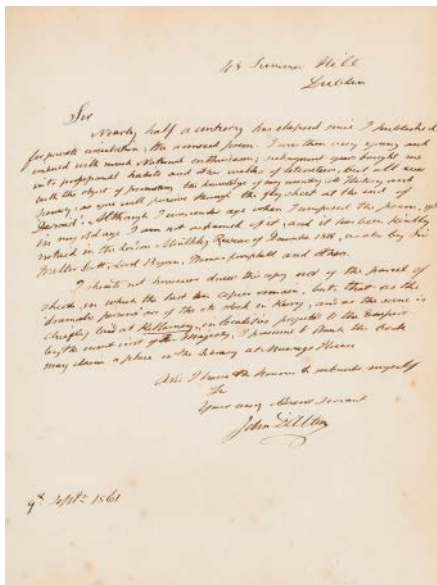 48 Summer Hill
Dublin
Sir
Nearly half a century has elapsed since I published
for private circulation, the annexed poem. I was then very young and
imbued with much National enthusiasm; subsequent years brought me
into professional habits and other walks of literature, but all ever
with the object of promoting the knowledge of my country, its History, and
as you will perceive through the fly sheet at the end of
Dermid. Although I was under age when I composed the poem, yet
in my old age I am not ashamed of it, and it has been kindly
noticed in the London Monthly Review of December 1818, as also by Sir
Walter Scott, Lord Byron, Thomas Campbell and others.
I should not however draw this copy out of the parcel of
sheets, in which the last ten copies remain, but, that as the
dramatis personae of the work in Kerry, and as the scene is
chiefly laid at Killarney, in localities to the
by the recent visit of Her Majesty, I presume to think the Book
may claim a place in the Library at
And I have the honour to subscribe myself
Sir
Your very obedient servant
John D'Alton
9th Septr 1861